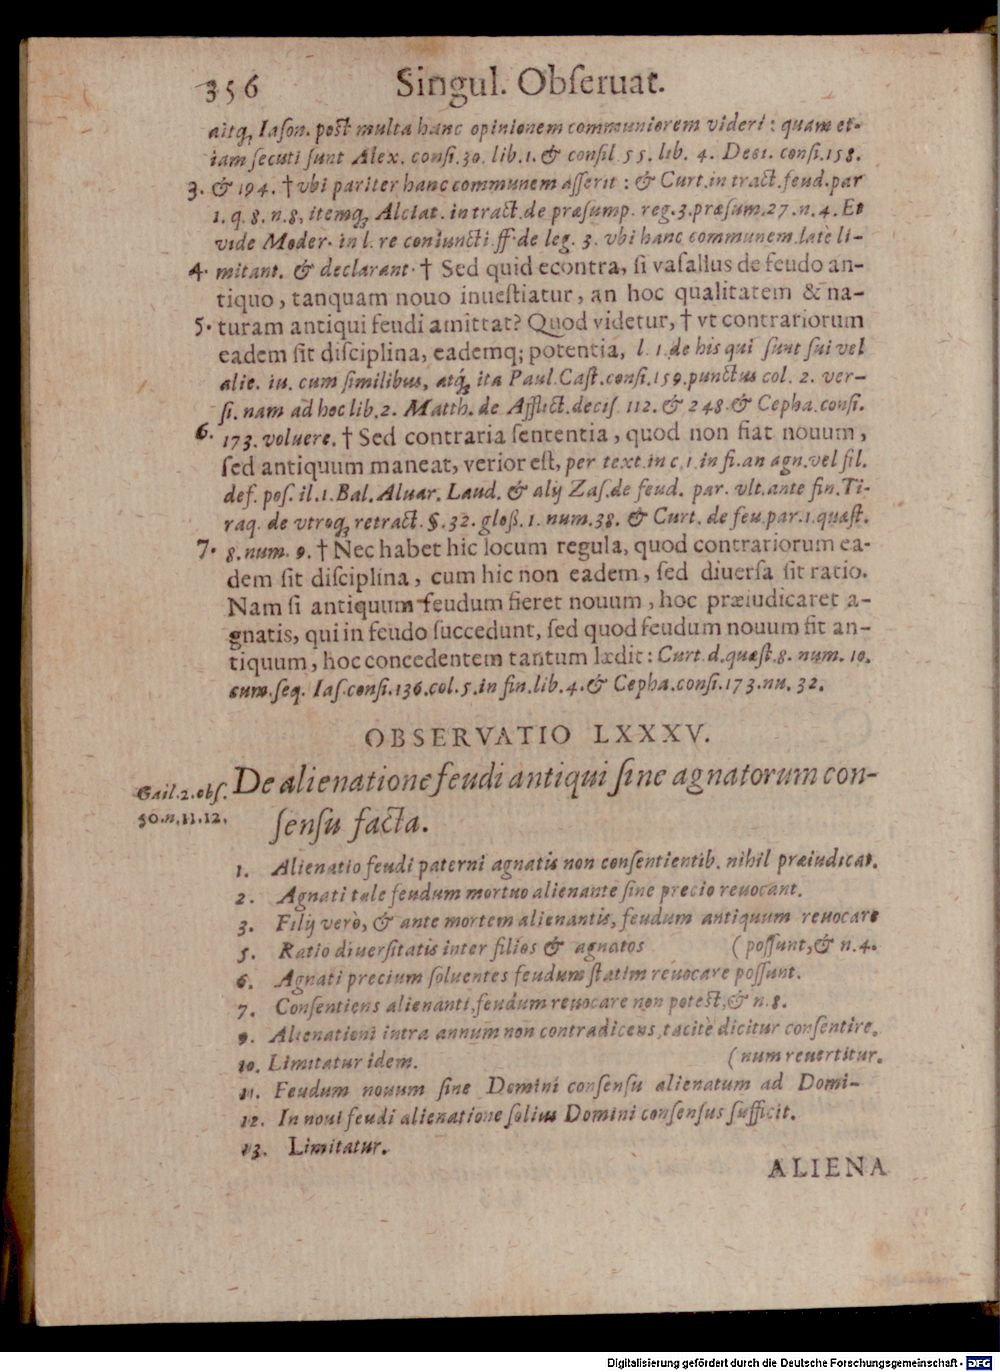 356 Singul. Obſeruat.
aitq́; Iaſon. poſt multa hanc opinionem communiorem videri : quam et-
iam ſecuti ſunt Alex. conſi. 30. lib. 1. & conſil 55. lib. 4. Deci. conſi. 158.
3. & 194. † vbi pariter hanc communem aſſerit : & Curt. in tract. feud. par
1. q. 8. n. 8, itemq́; Alciat. in tract. de præſump. reg. 3. præſum. 27. n. 4. Et
vide Moder. in l. re coniuncti. ff. de leg. 3. vbi hanc communem latè li-
4. mitant. & declarant. † Sed quid econtra, ſi vaſallus de feudo an-
tiquo, tanquam nouo inueſtiatur, an hoc qualitatem & na-
5. turam antiqui feudi amittat? Quod videtur, † vt contrariorum
eadem ſit diſciplina, eademq; potentia, l. 1. de his qui ſunt ſui vel
alie. iu. cum ſimilibus, atq́; ita Paul. Caſt. conſi. 159. punctus col. 2. ver-
ſi. nam ad hoc lib. 2. Matth. de Afflict. deciſ. 112. & 248. & Cepha. conſi.
6. 173. voluere. † Sed contraria ſententia, quod non fiat nouum,
ſed antiquum maneat, verior eſt, per text. in c. 1. in fi. an agn. vel fil.
def. poſ. il. 1. Bal. Aluar. Laud. & alij Zaſ. de feud. par. vlt. ante fin. Ti-
raq. de vtroq́; retract. §. 32. gloß. 1. num. 38. & Curt. de feu. par. 1. quæſt.
7. 8. num. 9. † Nec habet hic locum regula, quod contrariorum ea-
dem ſit diſciplina, cum hic non eadem, ſed diuerſa ſit ratio.
Nam ſi antiquum feudum fieret nouum, hoc præiudicaret a-
gnatis, qui in feudo ſuccedunt, ſed quod feudum nouum fit an-
tiquum, hoc concedentem tantum lædit : Curt. d. quæſt. 8. num. 10.
cum. ſeq. Iaſ. conſi. 136. col. 5. in fin. lib. 4. & Cepha. conſi. 173. nu. 32.
OBSERVATIO LXXXV.
Gail. 2. obſ.
50. n. 11. 12.
De alienatione feudi antiqui ſine agnatorum con-
ſenſu facta.
1. Alienatio feudi paterni agnatis non conſentientib. nihil præiudicat.
2. Agnati tale feudum mortuo alienante ſine precio reuocant.
3. Filij verò, & ante mortem alienantis, feudum antiquum reuocare
5. Ratio diuerſitatis inter filios & agnatos (poſſunt, & n. 4.
6. Agnati precium ſoluentes feudum ſtatim reuocare poſſunt.
7. Conſentiens alienanti, feudum reuocare non poteſt, & n. 8.
9. Alienationi intra annum non contradicens, tacitè dicitur conſentire.
10. Limitatur idem. (num reuertitur.
11. Feudum nouum ſine Domini conſenſu alienatum ad Domi-
12. In noui feudi alienatione ſolius Domini conſenſus ſufficit.
13. Limitatur.
ALIENA
Digitalisierung gefördert durch die Deutsche Forschungsgemeinschaft - DFG